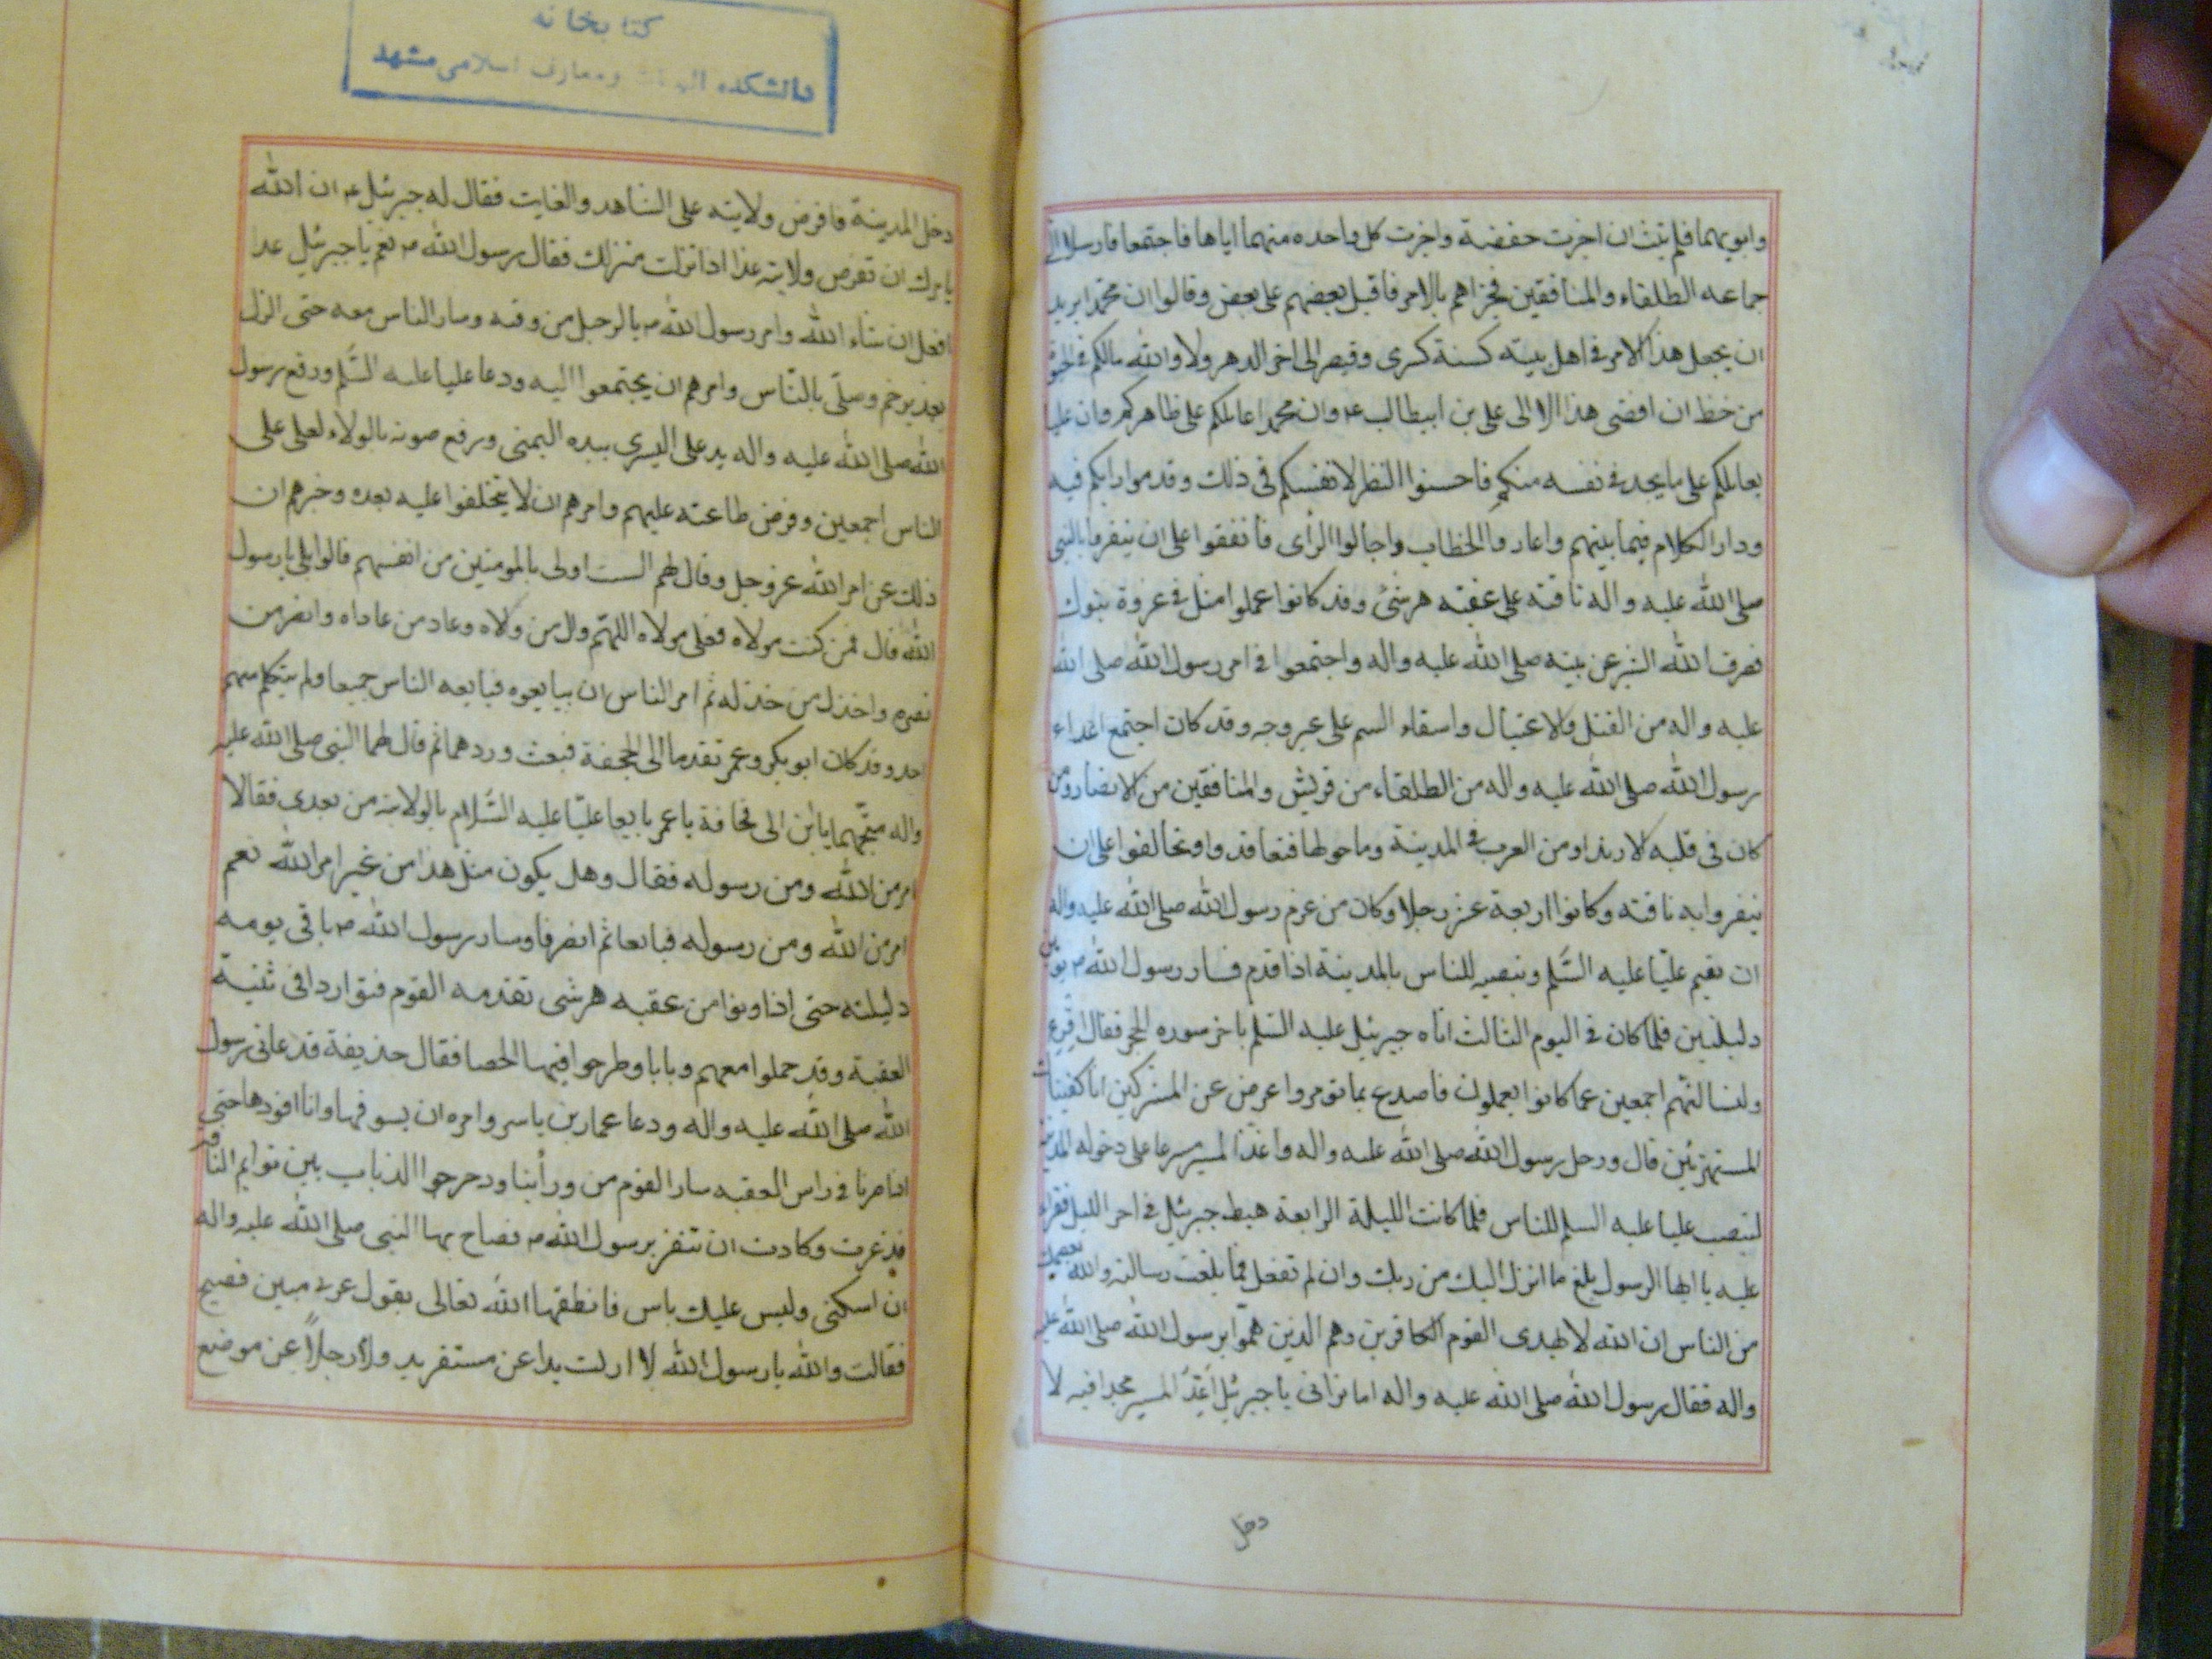 وابويهما فلم يلبث ان اخبرت حفضة واخبرت كل واحده منهما اباها فاجتمعا فارسلا الى
جماعه الطلقاء والمنافقين فخبراهم بالامر فاقبل بعضهم على بعض وقالوا ان محمدا يريد
ان يجعل هذا الامر في اهل بيته كسنة كسرى وقيصر الى اخر الدهر ولا والله مالكم في الحيوة
من حظ ان افضى هذا الا الى على بن ابيطالب ع وان محمدا عاملكم على ظاهركم وان عليا
يعاملكم على ما يجد في نفسه منكم فاحسنوا النظر لانفسكم في ذلك وقدموا رايكم فيه
ودار الكلام فيما بينهم واعادوا الخطاب واجالوا الراى فاتفقوا على ان ينفروا بالنبى
صلى الله عليه واله ناقته على عقبه هرشى وقد كانوا عملوا مثل في غزوة تبوك
فصرف الله الشر عن نبيه صلى الله عليه واله واجتمعوا في امر رسول الله صلى الله
عليه واله من القتل والاغتيال واسقاء السم على غير وجه وقد كان اجتمع اعداء
رسول الله صلى الله عليه واله من الطلقاء من قريش والمنافقين من الانصار ومن
كان في قلبه الارتداد من العرب في المدينة وما حولها فتعاقدوا وتحالفوا على ان
ينفروا به ناقته وكانوا اربعة عشر رجلا وكان من عزم رسول الله صلى الله عليه واله
ان يقيم عليا عليه السلم وينصبه للناس بالمدينة اذا قدم فسار رسول الله ص يومين
وليلتين فلما كان في اليوم الثالث اتاه جبرئيل عليه السلم باخر سوره الحجر فقال اقرء
ولنسالنهم اجمعين عما كانوا يعملون فاصدع بما تومر واعرض عن المشركين انا كفيناك
المستهزئين قال ورحل رسول الله صلى الله عليه واله واغذ المسير مسرعا على دخوله المدينة
لينصب عليا عليه السلم للناس فلما كانت الليلة الرابعة هبط جبرئيل في اخر الليل فقرا
عليه يا ايها الرسول بلغ ما انزل اليك من ربك وان لم تفعل فما بلغت رسالته والله يعصمك
من الناس ان الله لا يهدى القوم الكافرين وهم الذين هموا برسول الله صلى الله عليه
واله فقال رسول الله صلى الله عليه واله اما ترانى يا جبرئيل اغذ المسير مجدا فيه لا
دخل
كتابخانه
دانشكده الهيات ومعارف اسلامى مشهد
دخل المدينة فافرض ولايته على الشاهد والغايب فقال له جبرئيل ع ان الله
يامرك ان تفرض ولايته غدا اذا نزلت منزلك فقال رسول الله ص نعم يا جبرئيل غدا
افعل ان شاء الله وامر رسول الله ص بالرحيل من وقته وسار الناس معه حتى انزل
بغدير خم وصلى بالناس وامرهم ان يجتمعوا اليه ودعا عليا عليه السلم ورفع رسول
الله صلى الله عليه واله يد على اليسرى بيده اليمنى ورفع صوته بالولاء لعلى على
الناس اجمعين وفرض طاعته عليهم وامرهم ان لا يتخلفوا عليه بعده وخبرهم ان
ذلك عن امر الله عز وجل وقال لهم الست اولى بالمومنين من انفسهم قالوا بلى يا رسول
الله قال فمن كنت مولاه فعلى مولاه اللهم وال من ولاه وعاد من عاداه وانصر من
نصره واخذل من خذله ثم امر الناس ان يبايعوه فبايعه الناس جميعا ولم يتكلم منهم
احد وقد كان ابو بكر وعمر تقدما الى الجحفة فبعث وردهما ثم قال لهما النبى صلى الله عليه
واله متجهما يابن ابى قحافة يا عمر بايعا عليا عليه السلام بالولاية من بعدى فقالا
امر من الله ومن رسوله فقال وهل يكون مثل هذا من غير امر الله نعم
امر من الله ومن رسوله فبايعا ثم انصرفا وسار رسول الله ص باقى يومه
وليلته حتى اذا دنوا من عقبه هرشى تقدمه القوم فتواردا فى ثنية
العقبة وقد حملوا معهم دبابا وطرحوا فيها الحصا فقال حذيفة فدعانى رسول
الله صلى الله عليه واله ودعا عمار بن ياسر وامره ان يسوقها وانا اقودها حتى
اذا صرنا في راس العقبه سار القوم من ورائنا ودحرجوا الدباب بين قوايم الناقة
فذعرت وكادت ان تنفر برسول الله ص فصاح بها النبى صلى الله عليه واله
ان اسكنى وليس عليك باس فانطقها الله تعالى بقول عربى مبين فصيح
فقالت والله يا رسول الله لا ازلت يدا عن مستقر يد ولا رجلا عن موضع